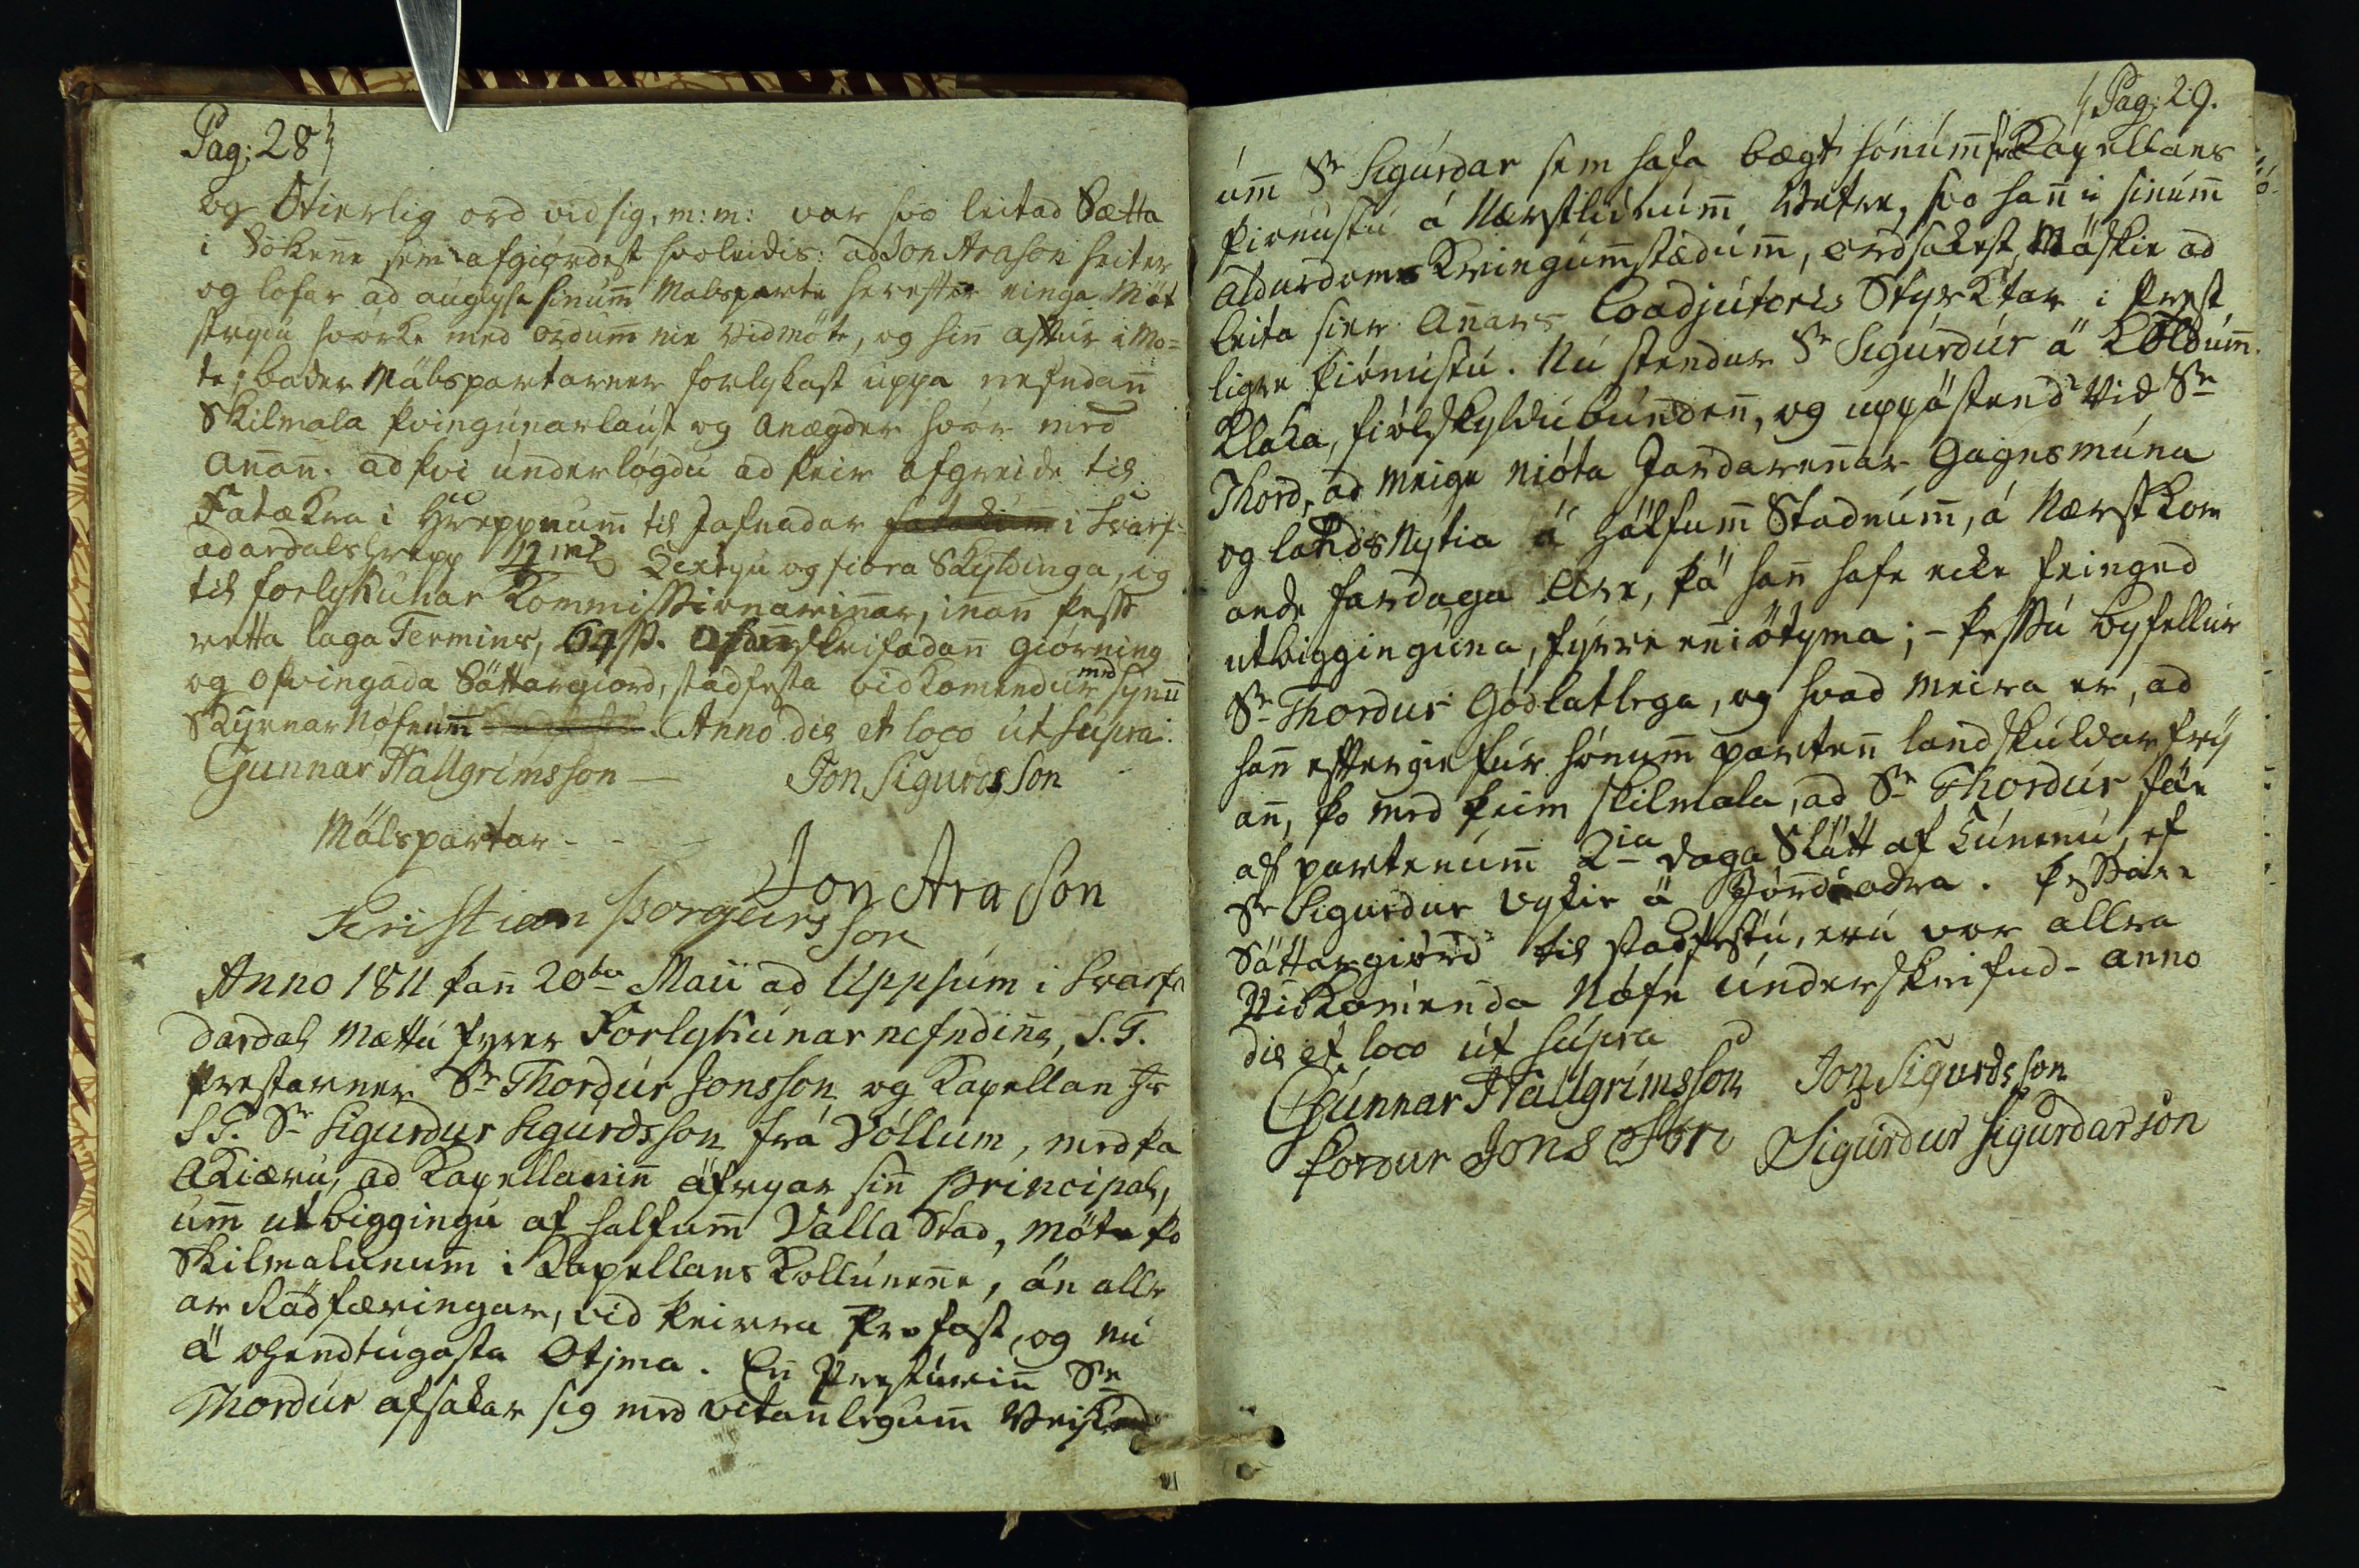 Pag: 28
og Otierlig ord vid sig, m: m: var svo leitad Sætta
i Sökenne sem afgiördest svoleidis: ad Jon Arason heiter
og lofar ad auglysa sinum Malsparte hereffter einga Möt
strydu hvorke med ordum nie Vidmöte, og hinn afftur i Mo=
te; bader Malspartarner forlykast uppa nefndann
Skilmala þvingunarlaust og Anægder hvor med
Annann. ad þvi underlögdu ad þeir afgreide til
Fatækra i Hreppnum til Jafnadar i Svarf=
adardals hrepp 4 mk Sextyu og fiora Skyldinga, og
til forlykunar Kommissionarinnar, innan þess
retta laga Termins, 64 sz. Ofannskrifadann giörning
og oþvingada Sättargiord, stadfesta vidkomendur med synu
Skyrnar Nöfnum Anno die et loco ut supra:
Gunnar Hallgrimsson — Jon Sigurdsson
Málspartar - - -
Jon Arason
Kristian Þorgeirsson
Anno 1811 þann 20ta Maii ad Uppsum i Svarfa
dardal mættu fyrer Forlykunar nefndinne, S. T.
Prestarner Sr Thordur Jonsson og Kapellan Hr
S T. Sr Sigurdur Sigurdsson frá Völlum, med þa
Akiæru, ad Kapellaninn áfryar sinn Principal,
um utbiggingu af halfum Valla Stad, móte þo
Skilmalunum i Kapellans Köllunenne, án allr
ar Rádfæringar, vid þeirra Profast, og nú
á ohendtugasta Otyma. Enn Presturinn Sr
Thordur afsakar sig med vitannlegum Veikend
Pag: 29.
um Sr Sigurdar sem hafa bægt hönum frá Kapellans
þienustu á Nærstlidnum Vetre, svo hann i sinum
Aldurdoms Kringumstædum, ordsakest, Máskie ad
leita sier Annars Coadjutoris Styrktar i Prest
ligre þiónustu. Nú stendur Sr Sigurdur á Köldum
Klaka, fiölskyldubundenn, og uppástend Vid Sr
Thord, ad meige nióta Jardarennar Gagnsmuna
og landsNytia á hálfum Stadnum, á Nærstkom
ande fardaga Are, þá hann hafe ecke feinged
utbigginguna, fyrre enn i ótyma; - þessu byfellur
Sr Thordur Gódlatlega, og hvad meira er, ad
hann effterziefur hönum partenn landskuldar fry
ann, þo med þeim skilmala, ad Sr Thordur fáe
af partenum 2ia daga Slátt af Tunenu, ef
Sr Sigurdur vykie á Jörd adra. Þessare
Sättargiörd til stadfestu, eru vor allra
Vidkomenda Nöfn underskrifud - anno
die et loco ut supra
Gunnar Hallgrimsson Jon Sigurdsson
Þordur Jonsson Sigurdur Sigurdarson